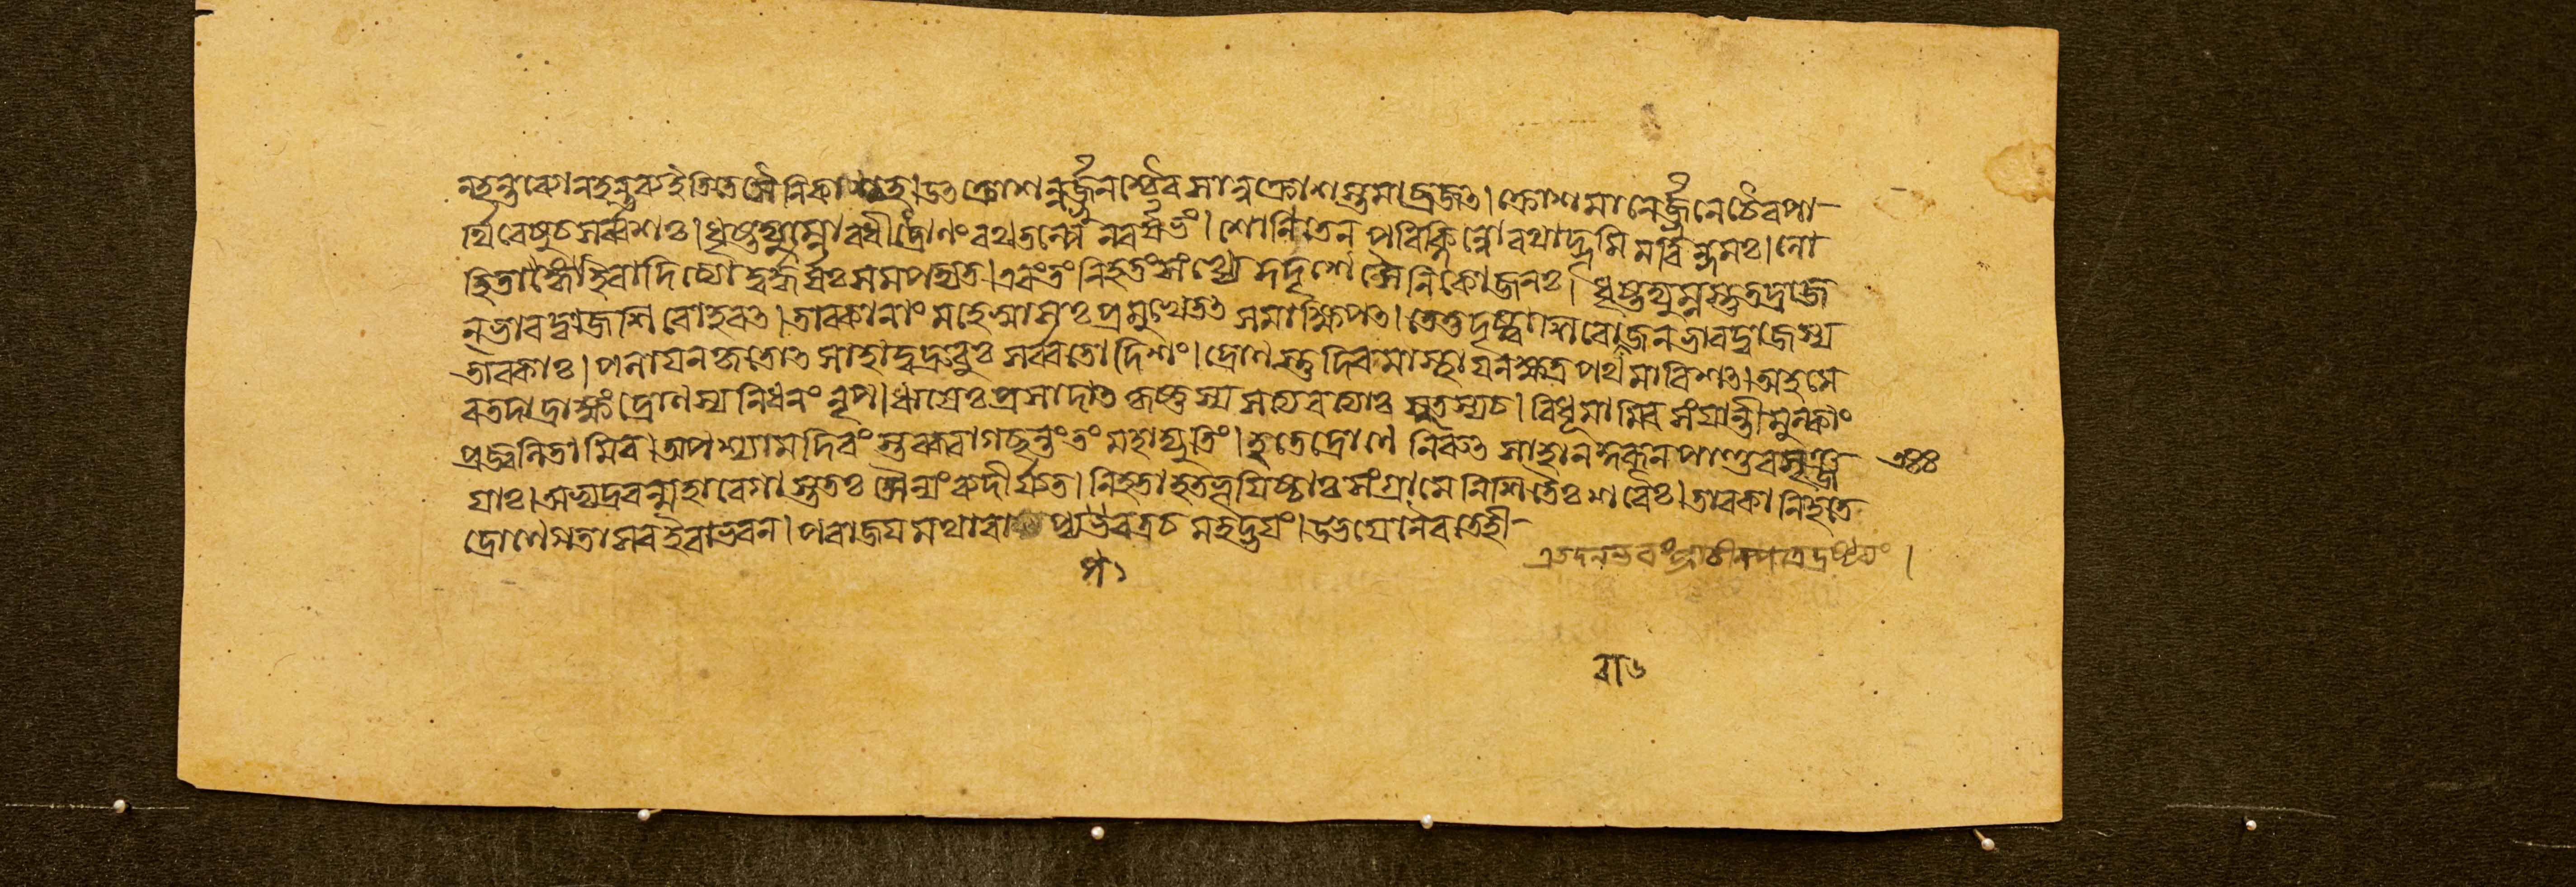 নহন্তব্যো ন হন্তব্য ইতি তে সৈনিকাশ্চ হ। উৎক্রোশন্নর্জ্জুনশ্চৈব সানুক্রোশস্তমাদ্রবৎ। ক্রোশমানেঽর্জ্জুনে চৈব পা-
র্থিবেষু চ সর্ব্বশঃ। ধৃষ্টদ্যুম্নোঽবধীদ্দ্রোণং রথতল্পে নরর্ষভং। শোণিতেন পরিক্লিন্নো রথাদ্ভূমিমরিন্দমঃ। লো
হিতাঙ্গ ইবাদিত্যো দুর্দ্ধর্ষঃ সমপদ্যত। এবং তং নিহতং সংখ্যে দদৃশে সৈনিকো জনঃ। ধৃষ্টদ্যুম্নস্তু তদ্রাজ
ন্ ভারদ্বাজশিরোহরৎ। তাবকানাং মহেষ্বাসঃ প্রমুখে তৎ সমাক্ষিপৎ। তে তু দৃষ্ট্বা শিরো রাজন্ ভারদ্বাজস্য
তাবকাঃ। পলায়নকৃতোৎসাহা দুদ্রুবুঃ সর্ব্বতো দিশং। দ্রোণস্তু দিবমাস্থায় নক্ষত্রপথমাবিশৎ। অহমে
ব তদাদ্রাক্ষং দ্রোণস্য নিধনং নৃপ। ঋষেঃ প্রসাদাৎ কৃষ্ণস্য সত্যবত্যাঃ সুতস্য চ। বিধূমামিব সংযান্তীমুল্কাং
প্রজ্বলিতামিব। অপশ্যাম দিবং স্তব্ধা গচ্ছন্তং তং মহাদ্যুতিং। হতে দ্রোণে নিরুৎসাহান্ কুরূন্ পাণ্ডবসৃঞ্জ
য়াঃ। অভ্যদ্রবন্মহাবেগাস্ততঃ সৈন্যং ব্যদীর্য্যত। নিহতা হতভূয়িষ্ঠাঃ সংগ্রামে নিশিতৈঃ শরৈঃ। তাবকা নিহতে
দ্রোণে গতাসব ইবাভবন্। পরাজয়মথাবাপ্য পরত্র চ মহদ্ভয়ং। উভয়েনৈব তে হী-
এতদনন্তরং প্রাচীনপত্রদ্রষ্টব্যং।
রা৬